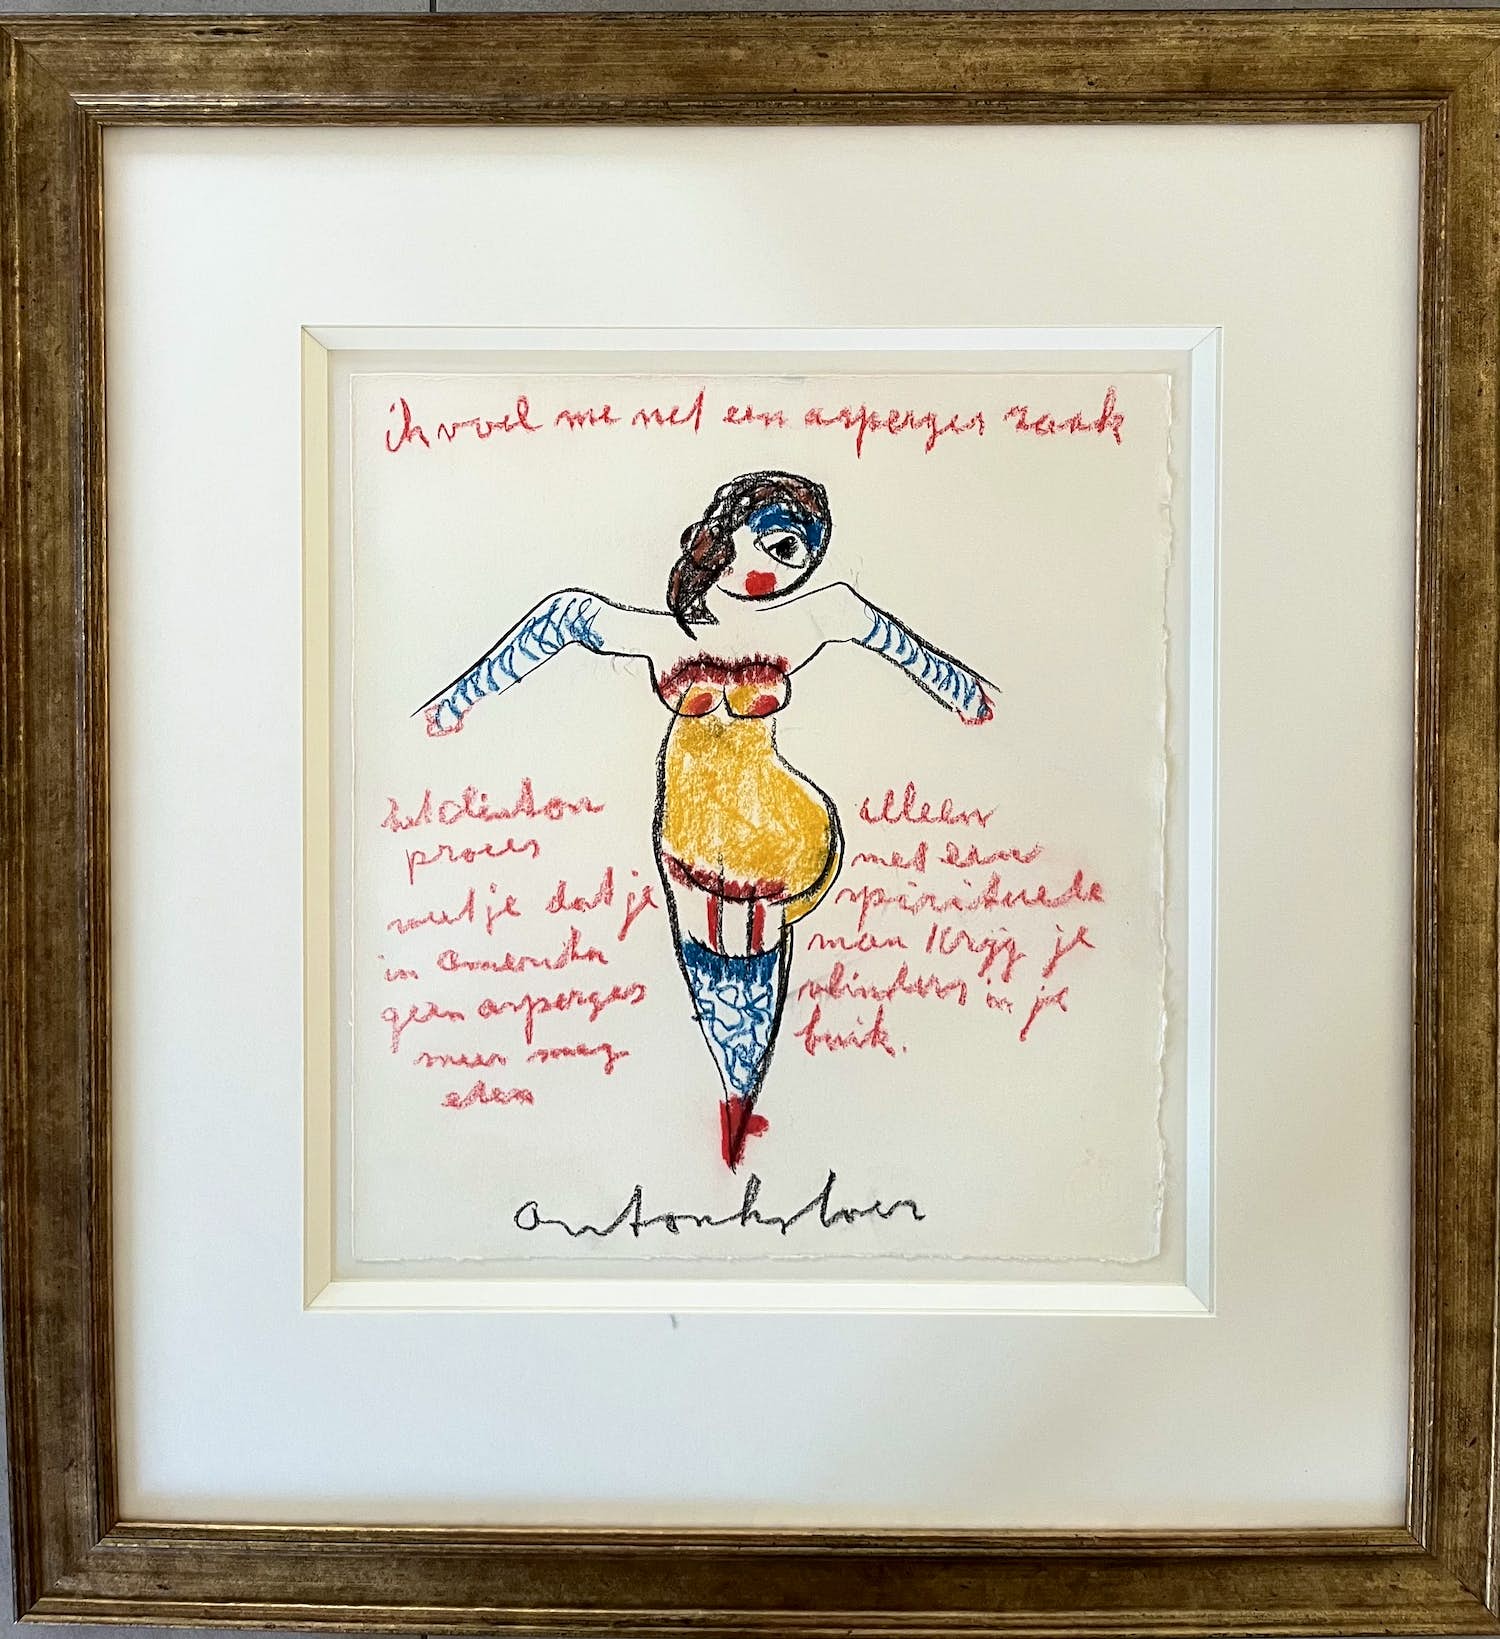 ik voel me net een asperges zaak
het Clinton
proces
weet je dat je
in amerika
geen asperges
meer mag
eten
alleen
met een
spirituele
man krijg je
vlinders in je
buik.
anton heyboer